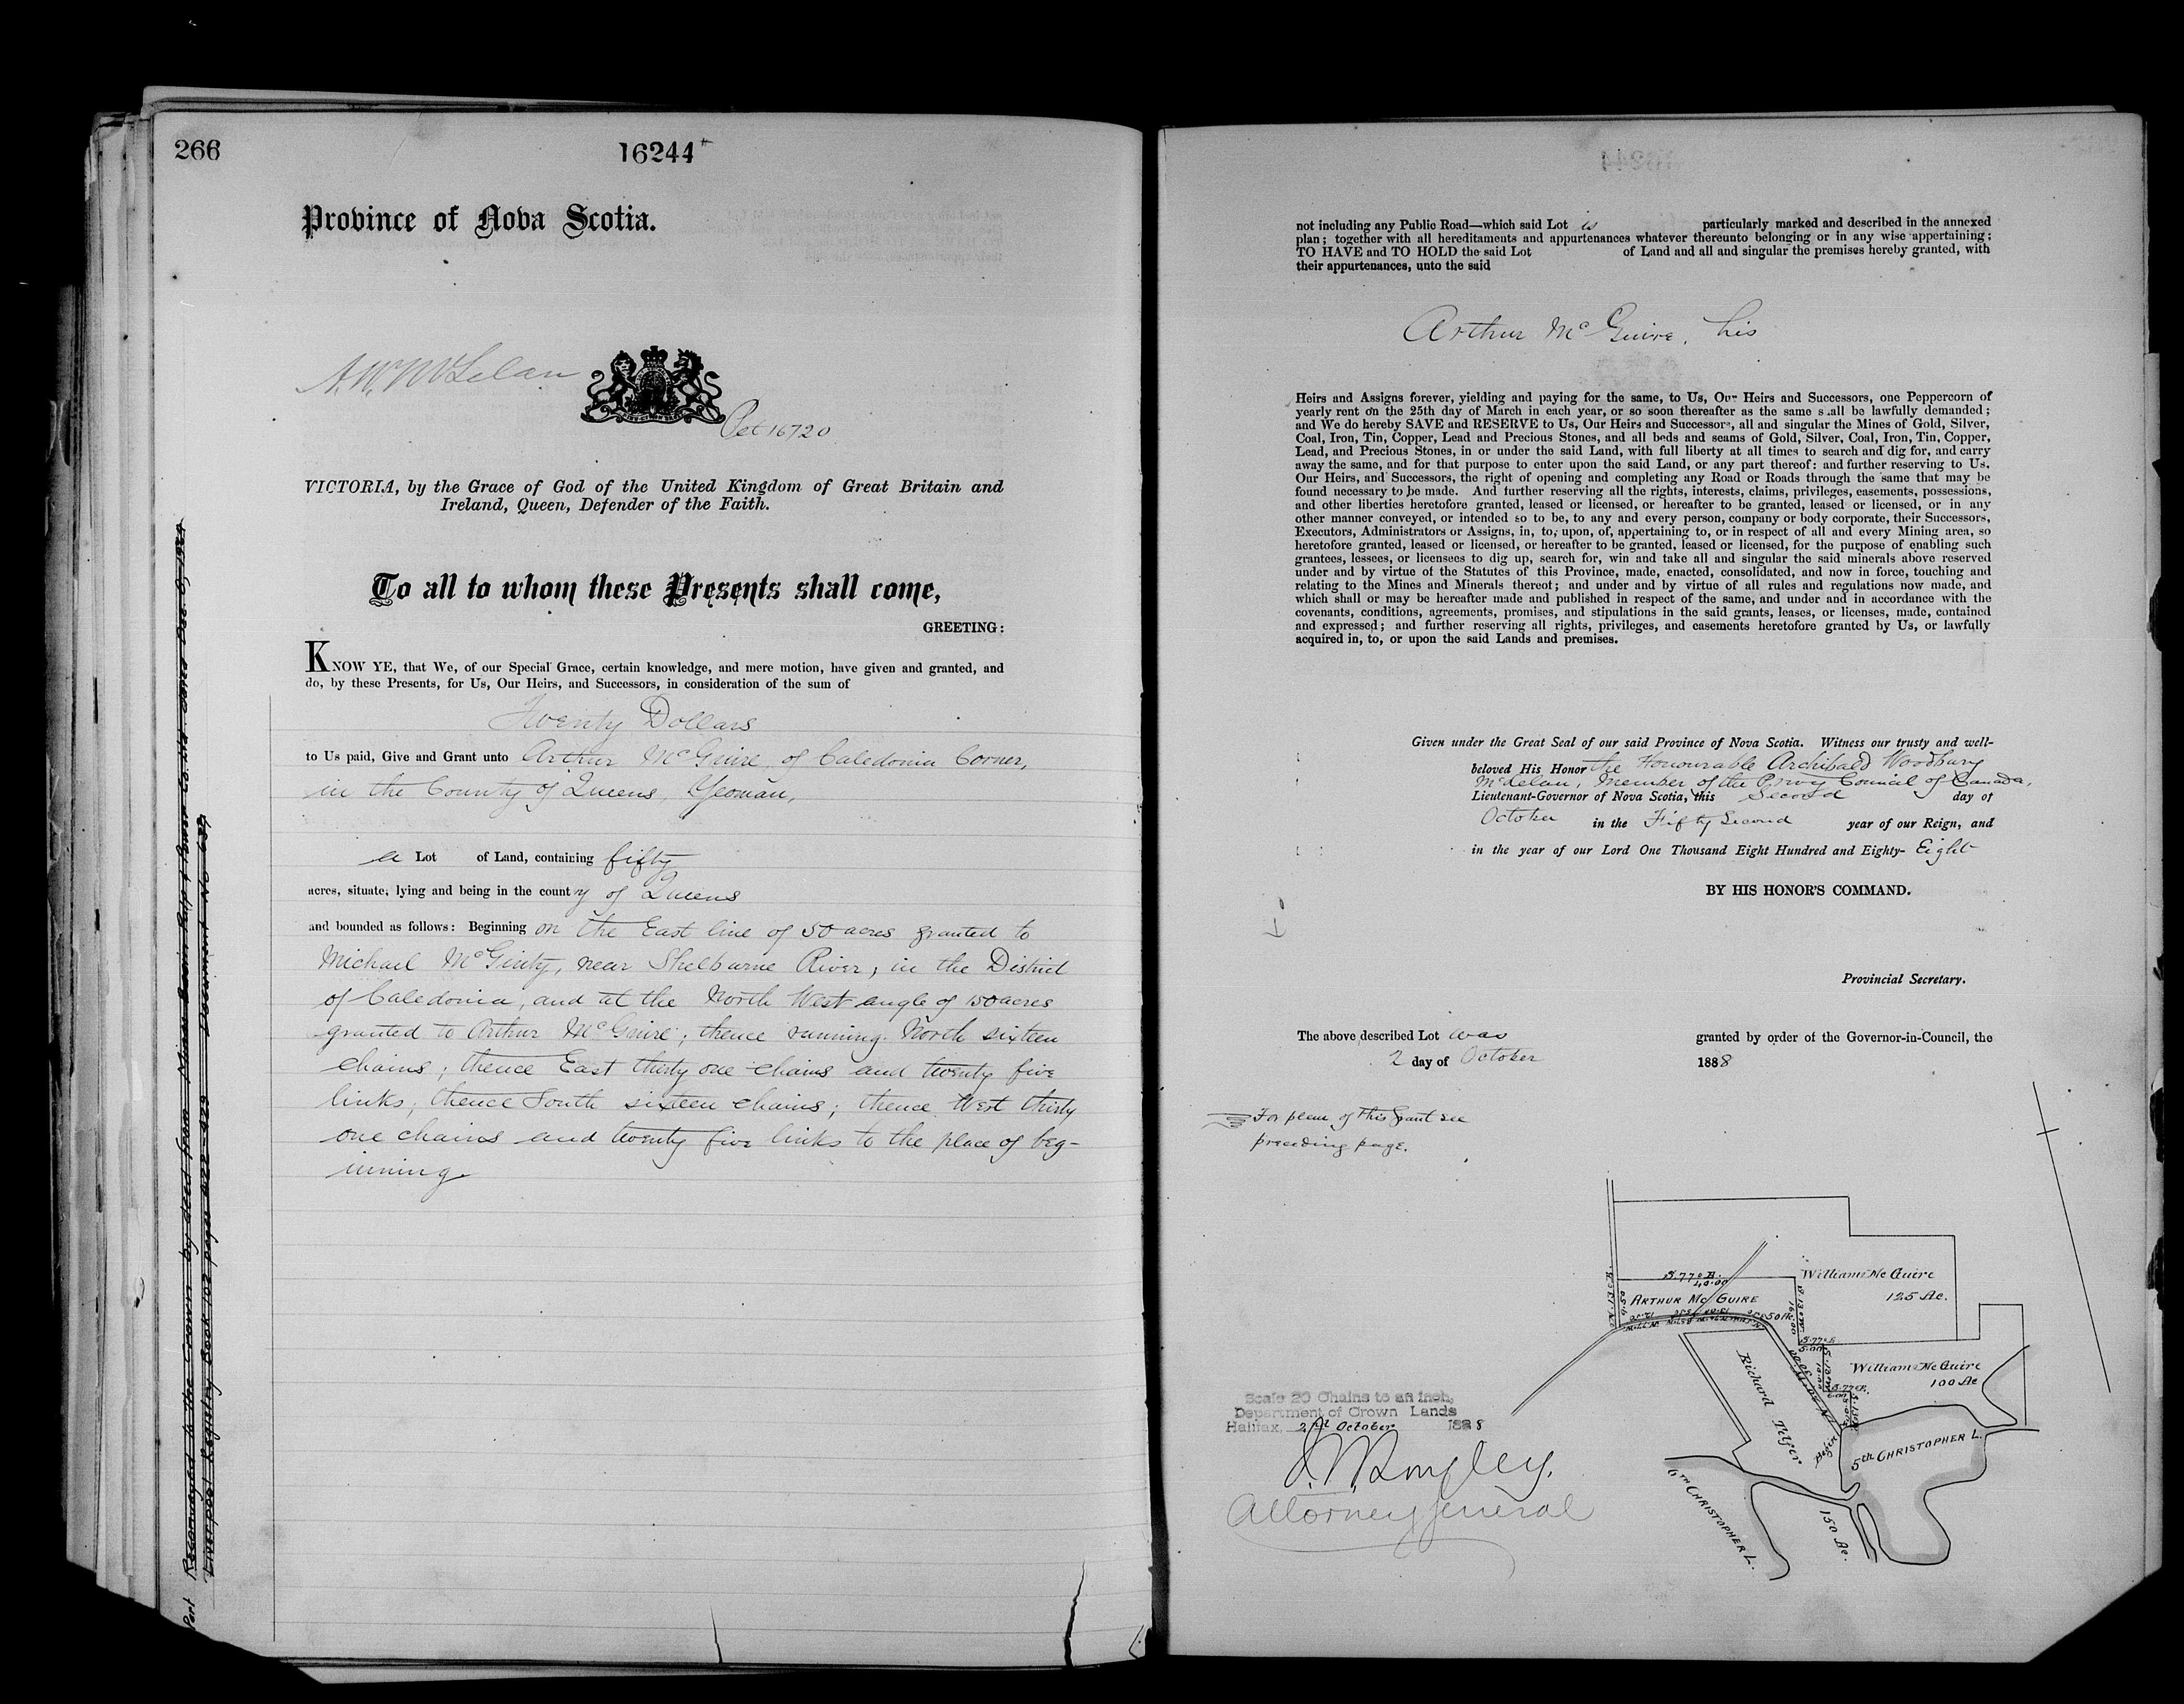 266
16244
Province of Nova Scotia.
A.W. McLelan
Pet 16720
VICTORIA, by the Grace of God of the United Kingdom of Great Britain and
Ireland, Queen, Defender of the Faith.
To all to whom these Presents shall come,
GREETING:
KNOW YE, that We, of our Special Grace, certain knowledge, and mere motion, have given and granted, and
do, by these Presents, for Us, Our Heirs, and Successors, in consideration of the sum of
Twenty Dollars
to Us paid, Give and Grant unto Arthur McGuire, of Caledonia Corner,
in the County of Queens, Yeoman,
a Lot of Land, containing fifty
acres, situate, lying and being in the county of Queens
and bounded as follows: Beginning on the East line of 50 acres granted to
Michael McGinty, near Shelburne River, in the District
of Caledonia, and at the North West angle of 150 acres
granted to Arthur McGuire; thence running North sixteen
chains; thence East thirty one chains and twenty five
links; thence South sixteen chains; thence West thirty
one chains and twenty five links to the place of beg-
inning.
Part Reconveyed to the Crown by deed from Pulp & Power Co. Ltd. dated Dec. 6, 1934
Liverpool Registry Book 102 pages 422-429 Document No 639
not including any Public Road—which said Lot is particularly marked and described in the annexed
plan; together with all hereditaments and appurtenances whatever thereunto belonging or in any wise appertaining;
TO HAVE and TO HOLD the said Lot of Land and all and singular the premises hereby granted, with
their appurtenances, unto the said
Arthur McGuire, his
Heirs and Assigns forever, yielding and paying for the same, to Us, Our Heirs and Successors, one Peppercorn of
yearly rent on the 25th day of March in each year, or so soon thereafter as the same shall be lawfully demanded;
and We do hereby SAVE and RESERVE to Us, Our Heirs and Successors, all and singular the Mines of Gold, Silver,
Coal, Iron, Tin, Copper, Lead and Precious Stones, and all beds and seams of Gold, Silver, Coal, Iron, Tin, Copper,
Lead, and Precious Stones, in or under the said Land, with full liberty at all times to search and dig for, and carry
away the same, and for that purpose to enter upon the said Land, or any part thereof: and further reserving to Us,
Our Heirs, and Successors, the right of opening and completing any Road or Roads through the same that may be
found necessary to be made. And further reserving all the rights, interests, claims, privileges, easements, possessions,
and other liberties heretofore granted, leased or licensed, or hereafter to be granted, leased or licensed, or in any
other manner conveyed, or intended so to be, to any and every person, company or body corporate, their Successors,
Executors, Administrators or Assigns, in, to, upon, of, appertaining to, or in respect of all and every Mining area, so
heretofore granted, leased or licensed, or hereafter to be granted, leased or licensed, for the purpose of enabling such
grantees, lessees, or licenses to dig up, search for, win and take all and singular the said minerals above reserved
under and by virtue of the Statutes of this Province, made, enacted, consolidated, and now in force, touching and
relating to the Mines and Minerals thereof; and under and by virtue of all rules and regulations now made, and
which shall or may be hereafter made and published in respect of the same, and under and in accordance with the
covenants, conditions, agreements, promises, and stipulations in the said grants, leases, or licenses, made, contained
and expressed; and further reserving all rights, privileges, and easements heretofore granted by Us, or lawfully
acquired in, to, or upon the said Lands and premises.
Given under the Great Seal of our said Province of Nova Scotia. Witness our trusty and well-
beloved His Honor the Honourable Archibald Woodbury
McLelan, Member of the Privy Council of Canada,
Lieutenant-Governor of Nova Scotia, this Second day of
October in the Fifty Second year of our Reign, and
in the year of our Lord One Thousand Eight Hundred and Eighty- Eight
BY HIS HONOR'S COMMAND.
Provincial Secretary.
The above described Lot was granted by order of the Governor-in-Council, the
2 day of October 1888
For plan of this Grant see
preceding page.
William McGuire
125 Ac.
S. 77° E.
40.00
ARTHUR MCGUIRE
50 Ac.
William McGuire
100 Ac
Richard Telfer
Begin
5th CHRISTOPHER L.
6TH CHRISTOPHER L.
150 Ac.
Scale 20 Chains to an inch,
Department of Crown Lands
Halifax, 2nd October 1888
J.W. Longley,
Attorney General